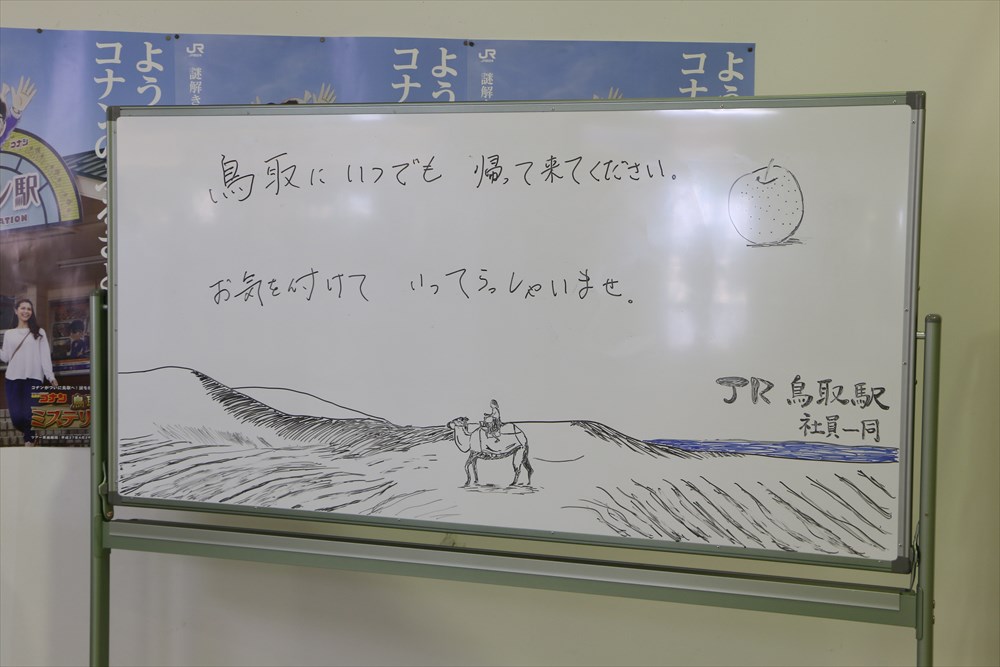 鳥取に いつでも 帰って来てください。
お気を付けて いってらっしゃいませ。
JR 鳥取駅
社員一同
よう
コナン
JR
謎解き
よう
コナ
JR
謎解
よう
コナ
コナン
駅
ATION
コナン
鳥
ミステリ